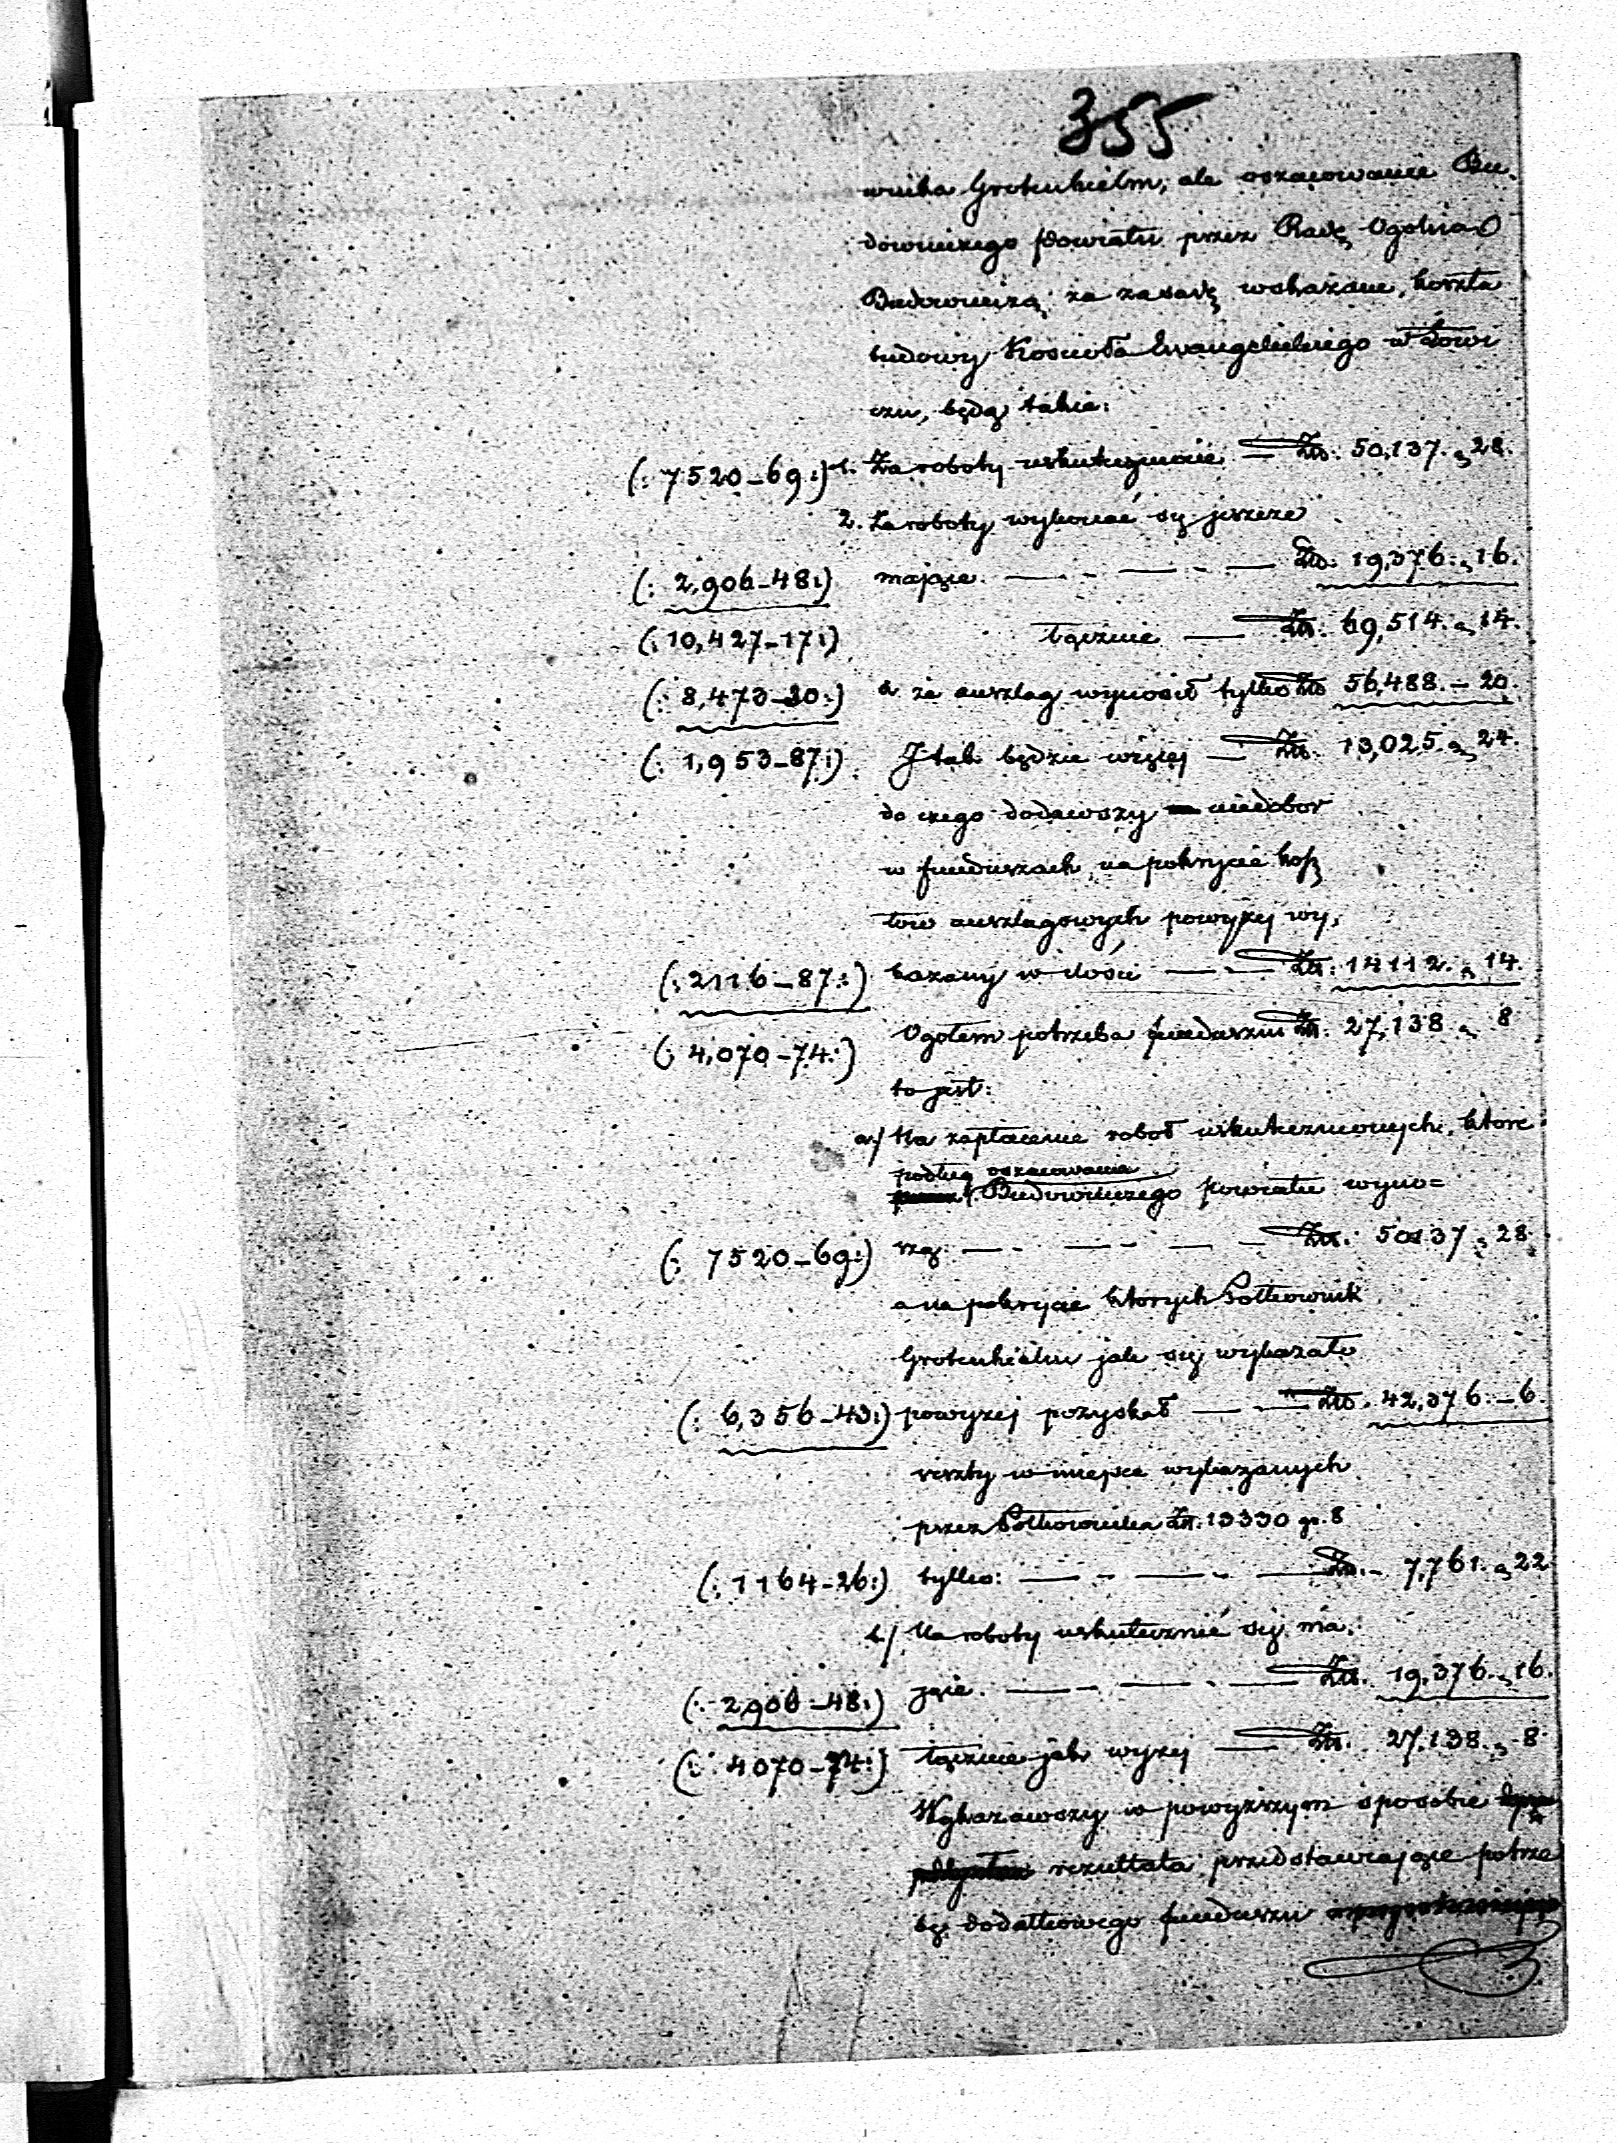 355
wnika Grotenhielm, ale oszacowanie Bu„
downiczego Powiatu przez Radę Ogolną
Budowniczą za zasadę wskazane, koszta
budowy Kościoła Ewangelickiego w Łowi
czu, będą takie:
(: 7520–69 :) 1. Za roboty uskutecznione — Złt. 50,137. „ 28.
2. Za roboty wykonać się jeszcze
(: 2,906–48 :) mające. — - — - — Złt. 19,376. „ 16.
(: 10,427–17 :) łącznie — Złt. 69,514. „ 14.
(: 8,473–30 :) a że anszlag wynosił tylko Złt 56,488. – 20.
(: 1,953–87 :) I tak będzie więcej — Złt. 13,025. „ 24.
do czego dodawszy niedobor
w funduszach na pokrycie kosz
tow anszlagowych powyżej wy„
(: 2116–87 :) kazany w ilości — - — Złt. 14112. „ 14.
(: 4,070–74 :) Ogołem potrzeba funduszu Złt. 27,138 „ 8
to jest:
a/ Na zapłacenie robot uskutecznionych, ktore
podług oszacowania
Budowniczego Powiatu wyno=
(: 7520–69 :) szą — - — - — - Złt. 50137 „ 28.
a na pokrycie ktorych Połkownik
Grotenhielm jak się wykazało
(: 6,356–43 :) powyżej pozyskał — - — Złt. 42,376. – 6.
reszty w miejsce wykazanych
przez Połkownika Złt. 13330 gr. 8
(: 1164–26 :) tylko: — - — - — Złt. – 7,761. „ 22
b/ Na roboty uskutecznić się ma„
(: 2906–48 :) jące. — - — - — Złt. 19,376. „ 16.
(: 4070–74 :) łącznie jak wyżej — Złt. 27,138. „ 8
Wykazawszy w powyższym sposobie
rezultata przedstawiające potrze
bę dodatkowego funduszu